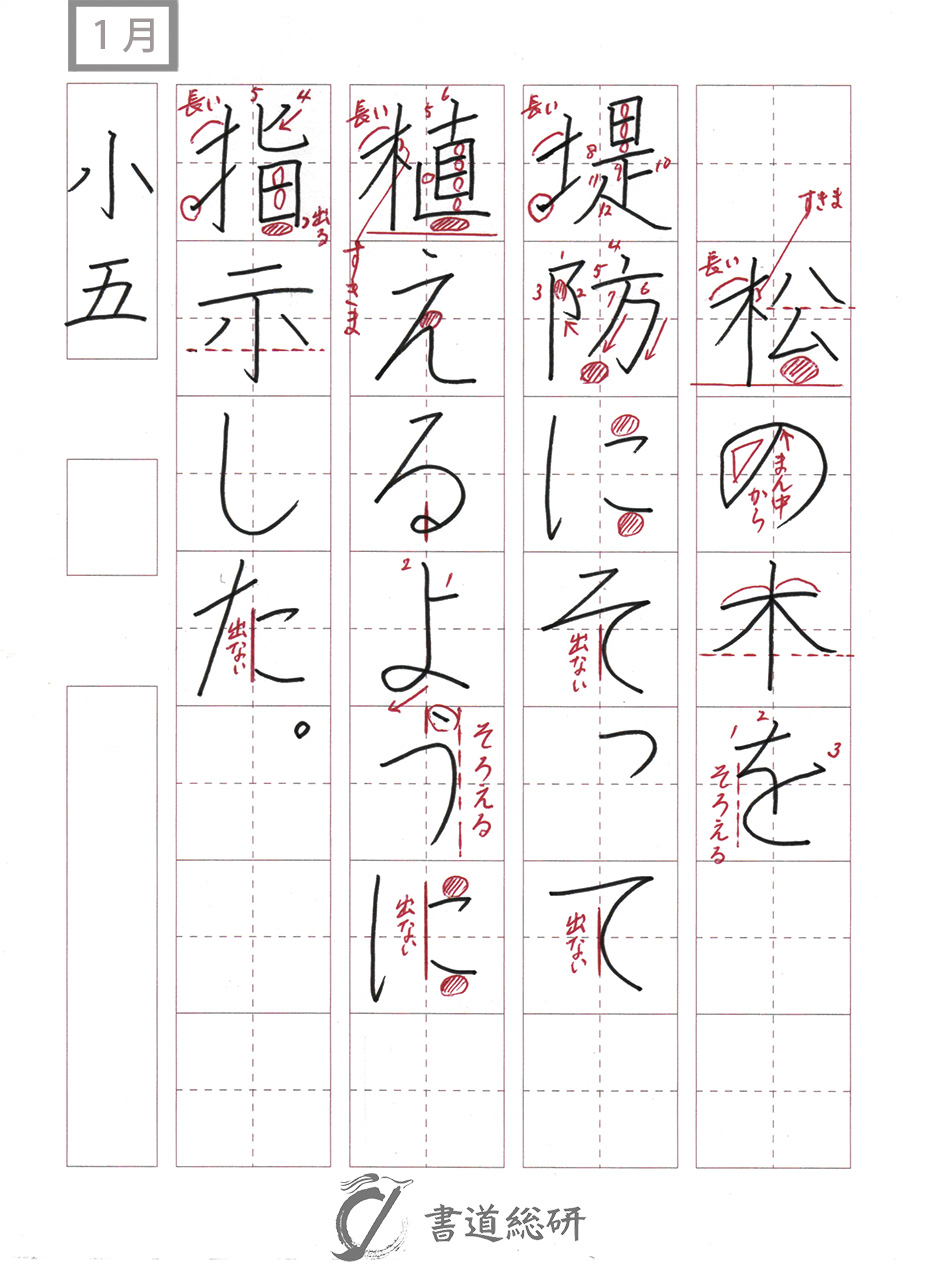 1月
松の木を
堤防にそって
植えるように
指示した。
小五
すきま
長い
まん中から
そろえる
長い
出ない
出ない
長い
すきま
そろえる
出ない
長い
出る
出ない
書道総研